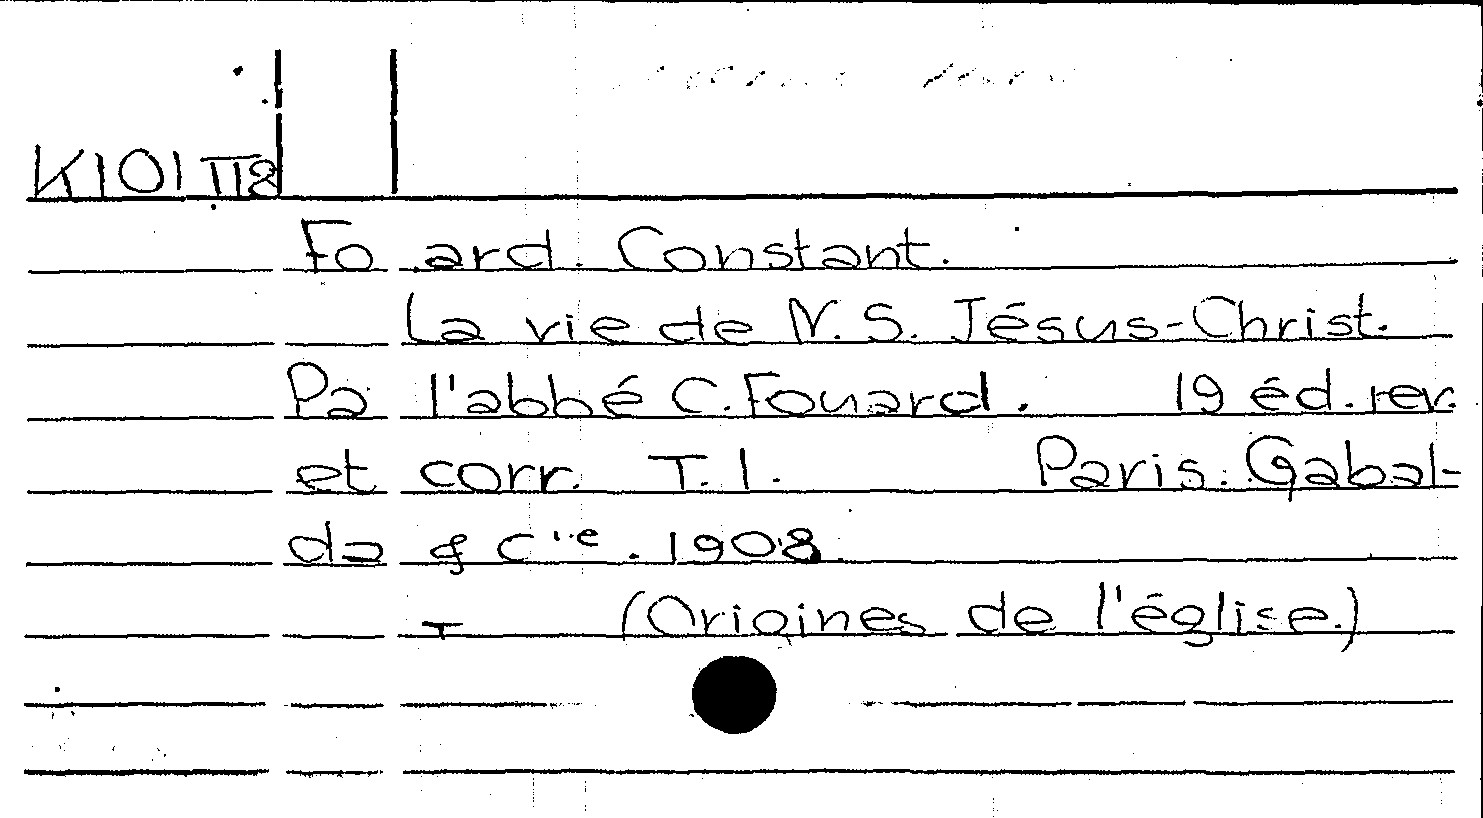 K101 II8
Fo ard. Constant.
La vie de N. S. Jésus-Christ.
Pa l'abbé C. Fouard. 19 éd. rev.
et corr. T. 1. Paris. Gabal-
da & Cie. 1908.
(Origines de l'église.)